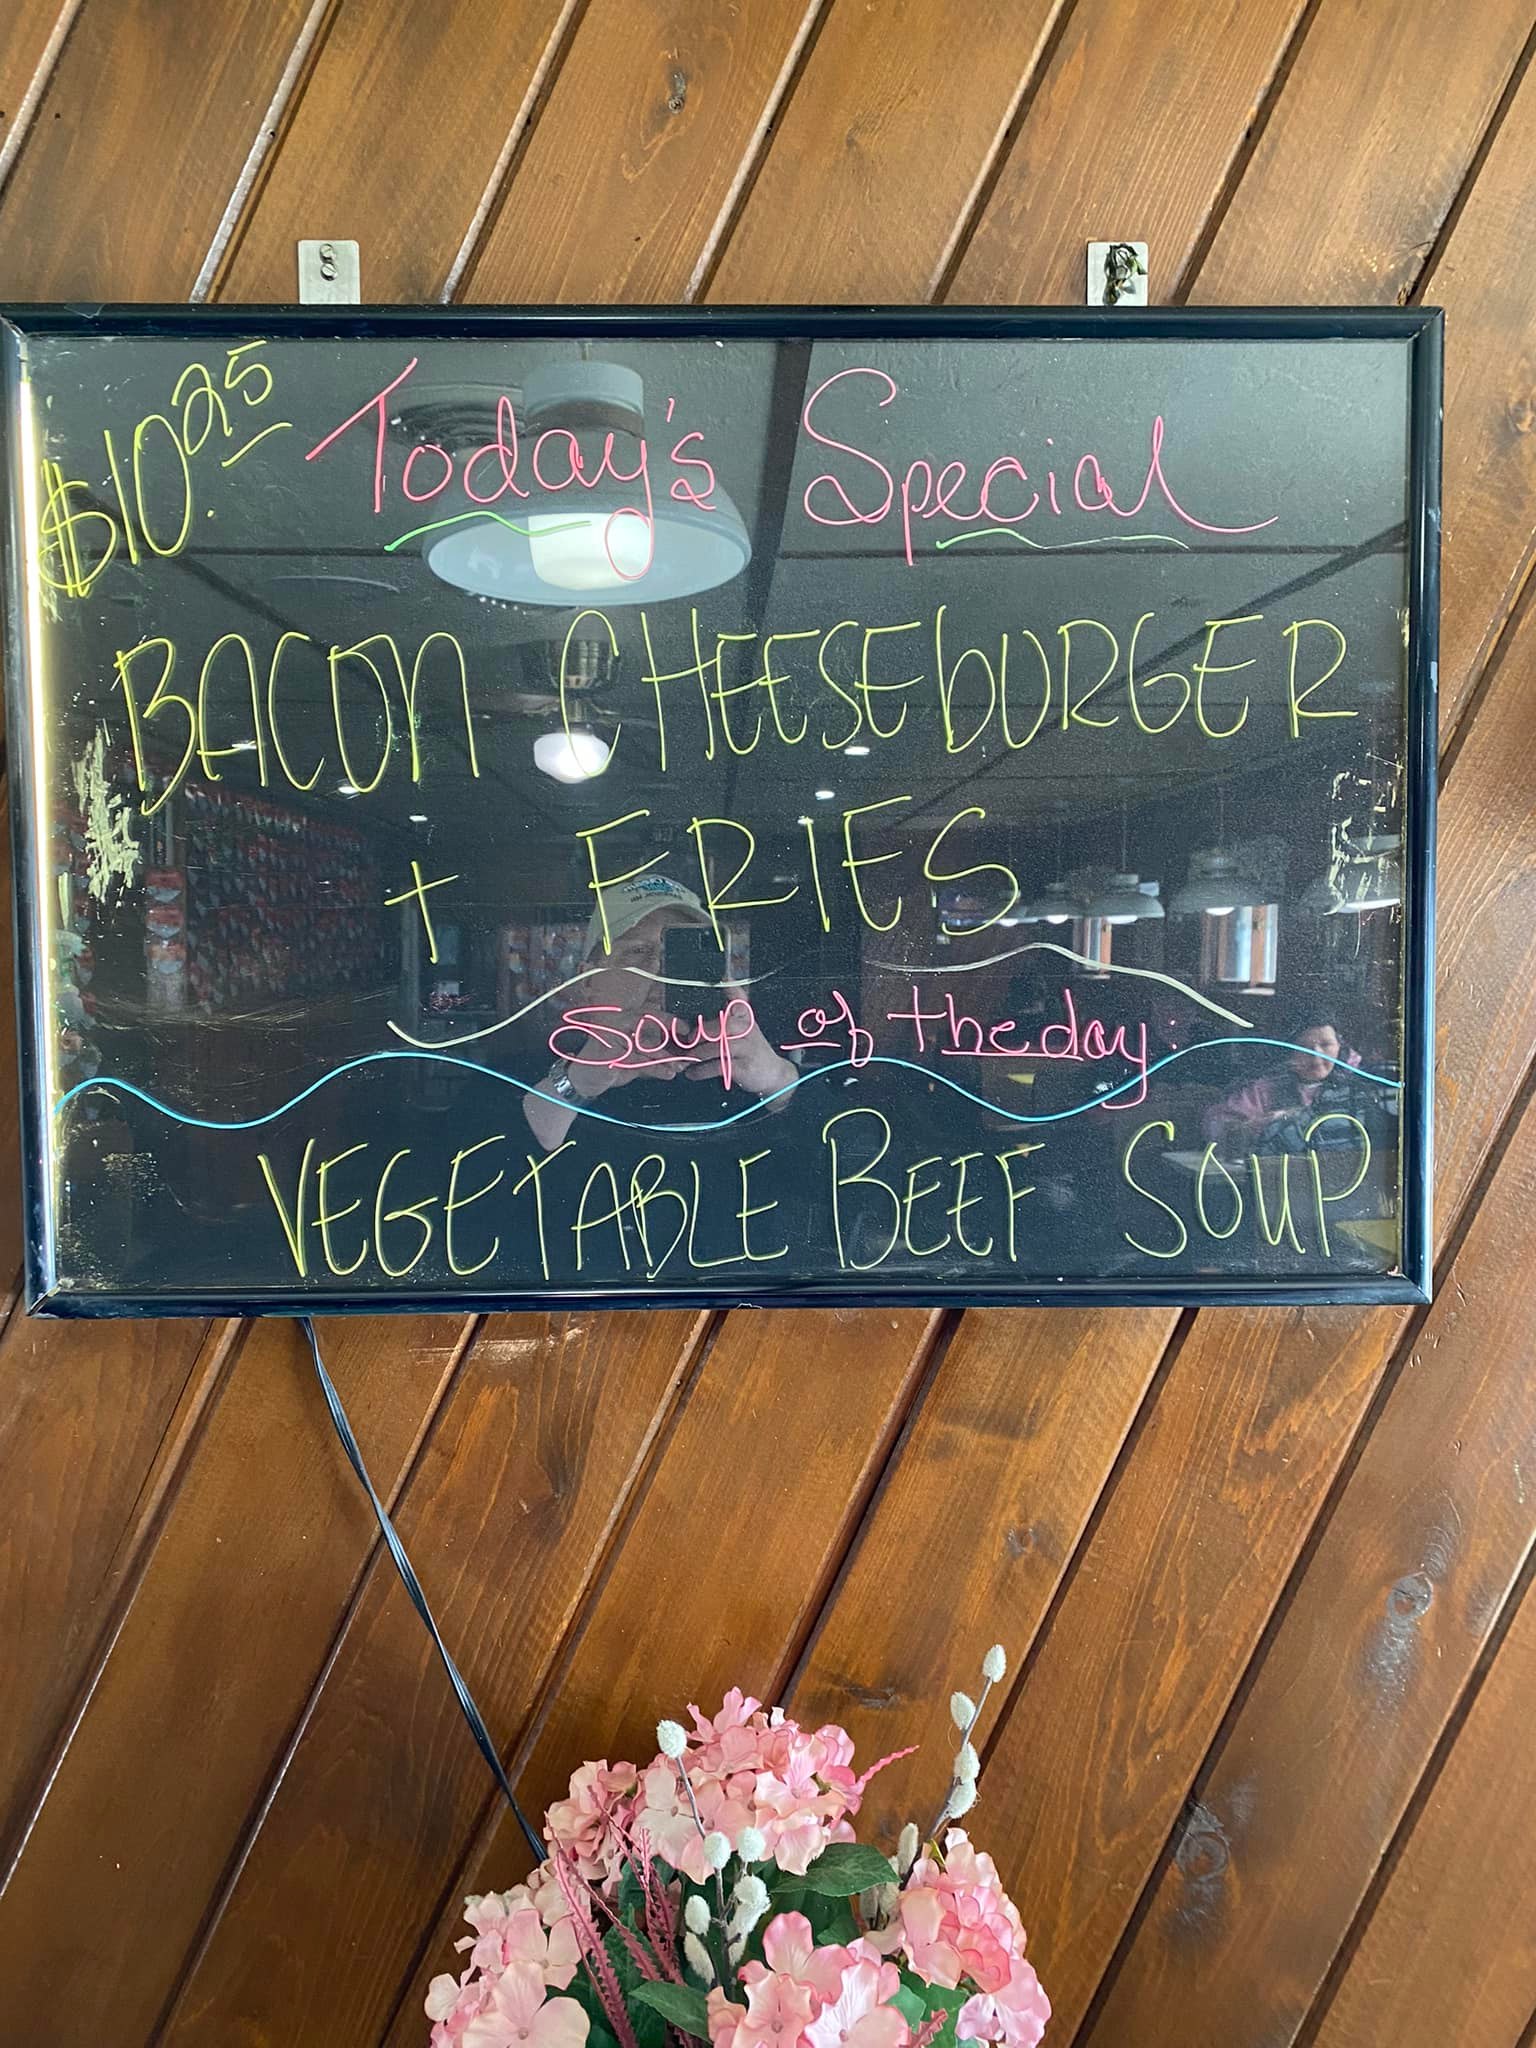 $10.25 Today's Special
BACON CHEESEbURGER
+ FRIES
Soup of the day:
VEGETABLE BEEF SOUP